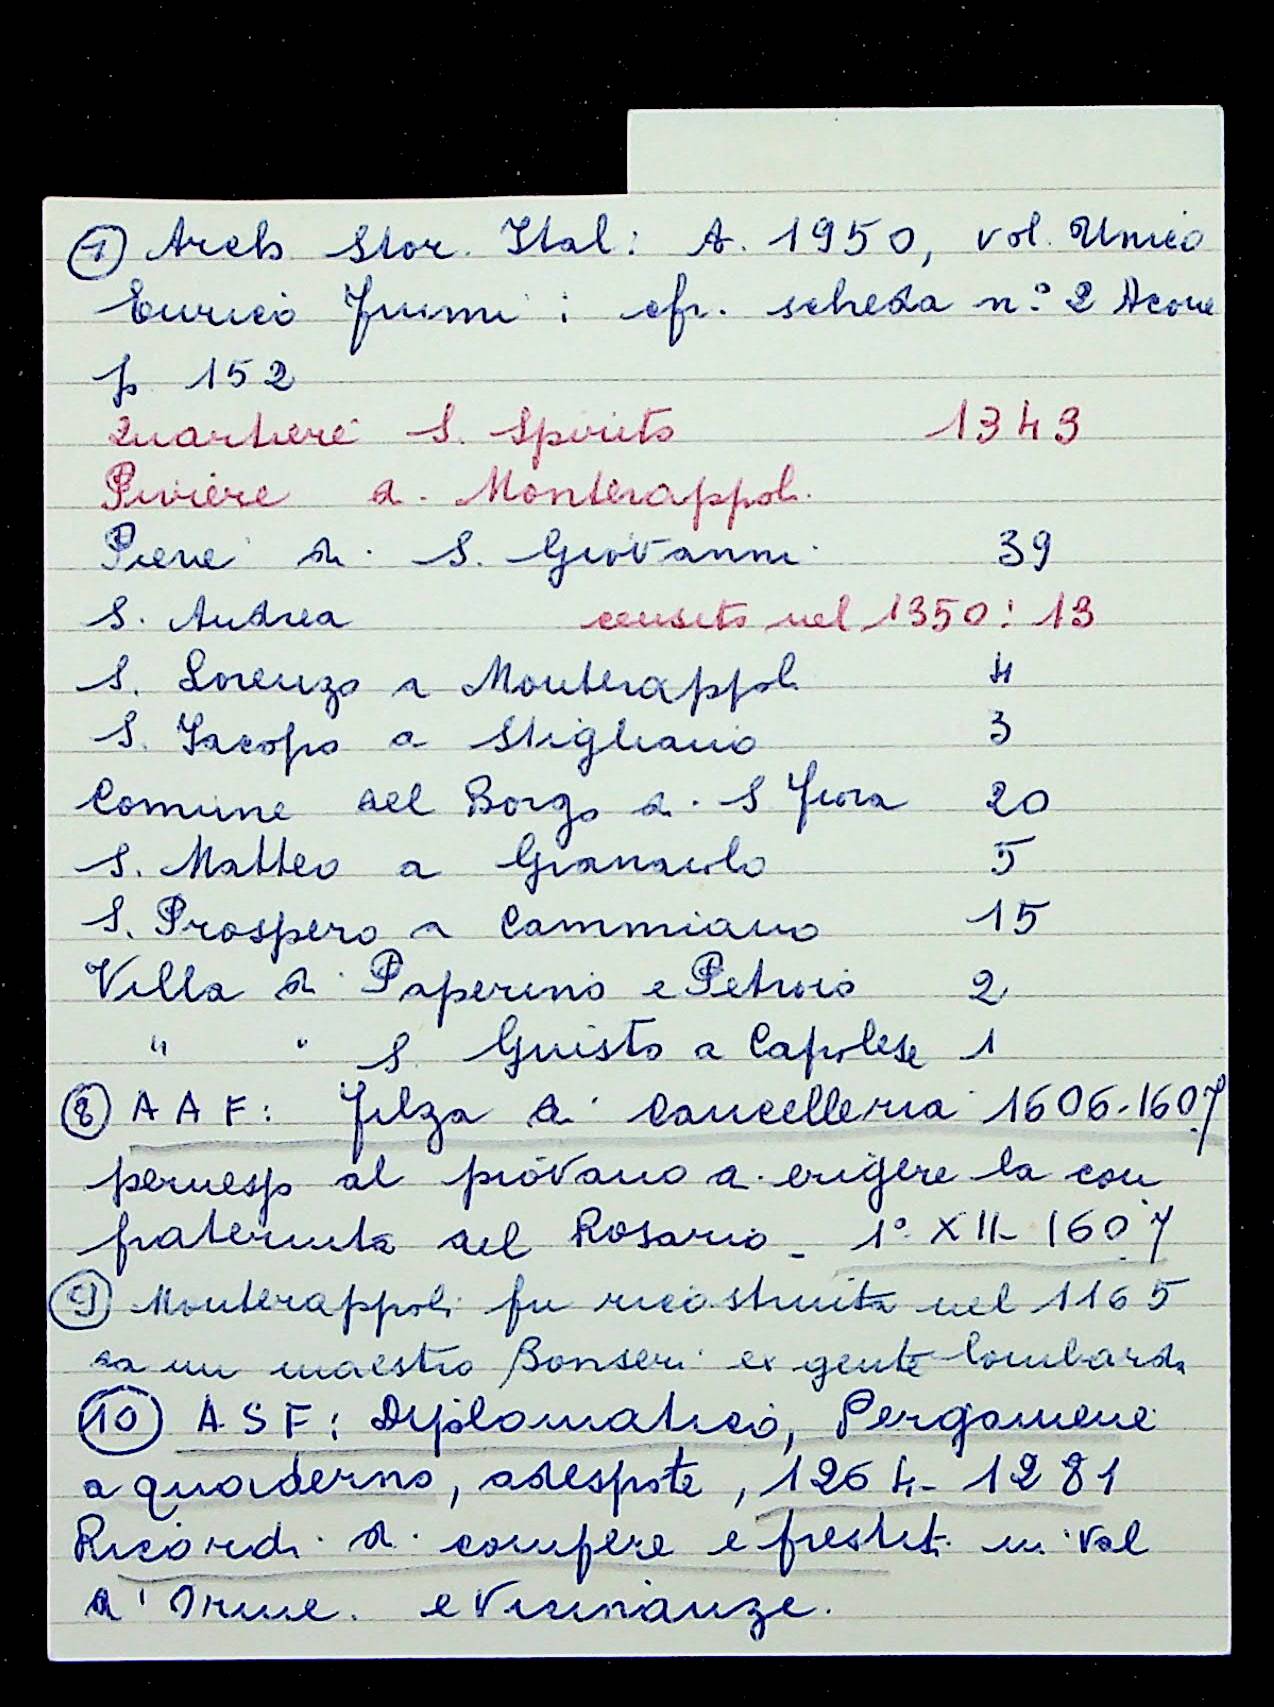 ⑦ Arch Stor. Ital: A. 1950, vol. Unico
Enrico Fiumi: cfr. scheda n.° 2 Acone
p 152
Quartiere S. Spirito 1343
Piviere di Monterappoli
Pieve di S. Giovanni 39
S. Andrea censito nel 1350: 13
S. Lorenzo a Monterappoli 4
S. Jacopo a Stigliano 3
Comune del Borgo di S Fiora 20
S. Matteo a Granaiolo 5
S. Prospero a Cammiano 15
Villa di Paperino e Petroio 2
" " S Giusto a Capolese 1
⑧ AAF: Filza di Cancelleria 1606-1607
permesso al piovano di erigere la con
fraternita del Rosario - 1° XII - 1607
⑨ Monterappoli fu ricostruita nel 1165
da un maestro Bonseri ex gente lombarda
⑩ ASF: Diplomatico, Pergamene
a quaderno, adespote, 1264-1281
Ricordi di compere e prestiti in Val
d'Orme. e Vicinanze.